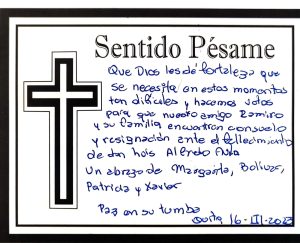 Sentido Pésame
Que Dios les dé fortaleza que
se necesita en estos momentos
tan difíciles y hacemos votos
para que nuestro amigo Ramiro
y su familia encuentren consuelo
y resignación ante el fallecimiento
de dan hois Alfredo
Un abrazo de Margarita, Bolívar,
Patricia y Xavier
Paz en su tumba
Quito 16-III-2023